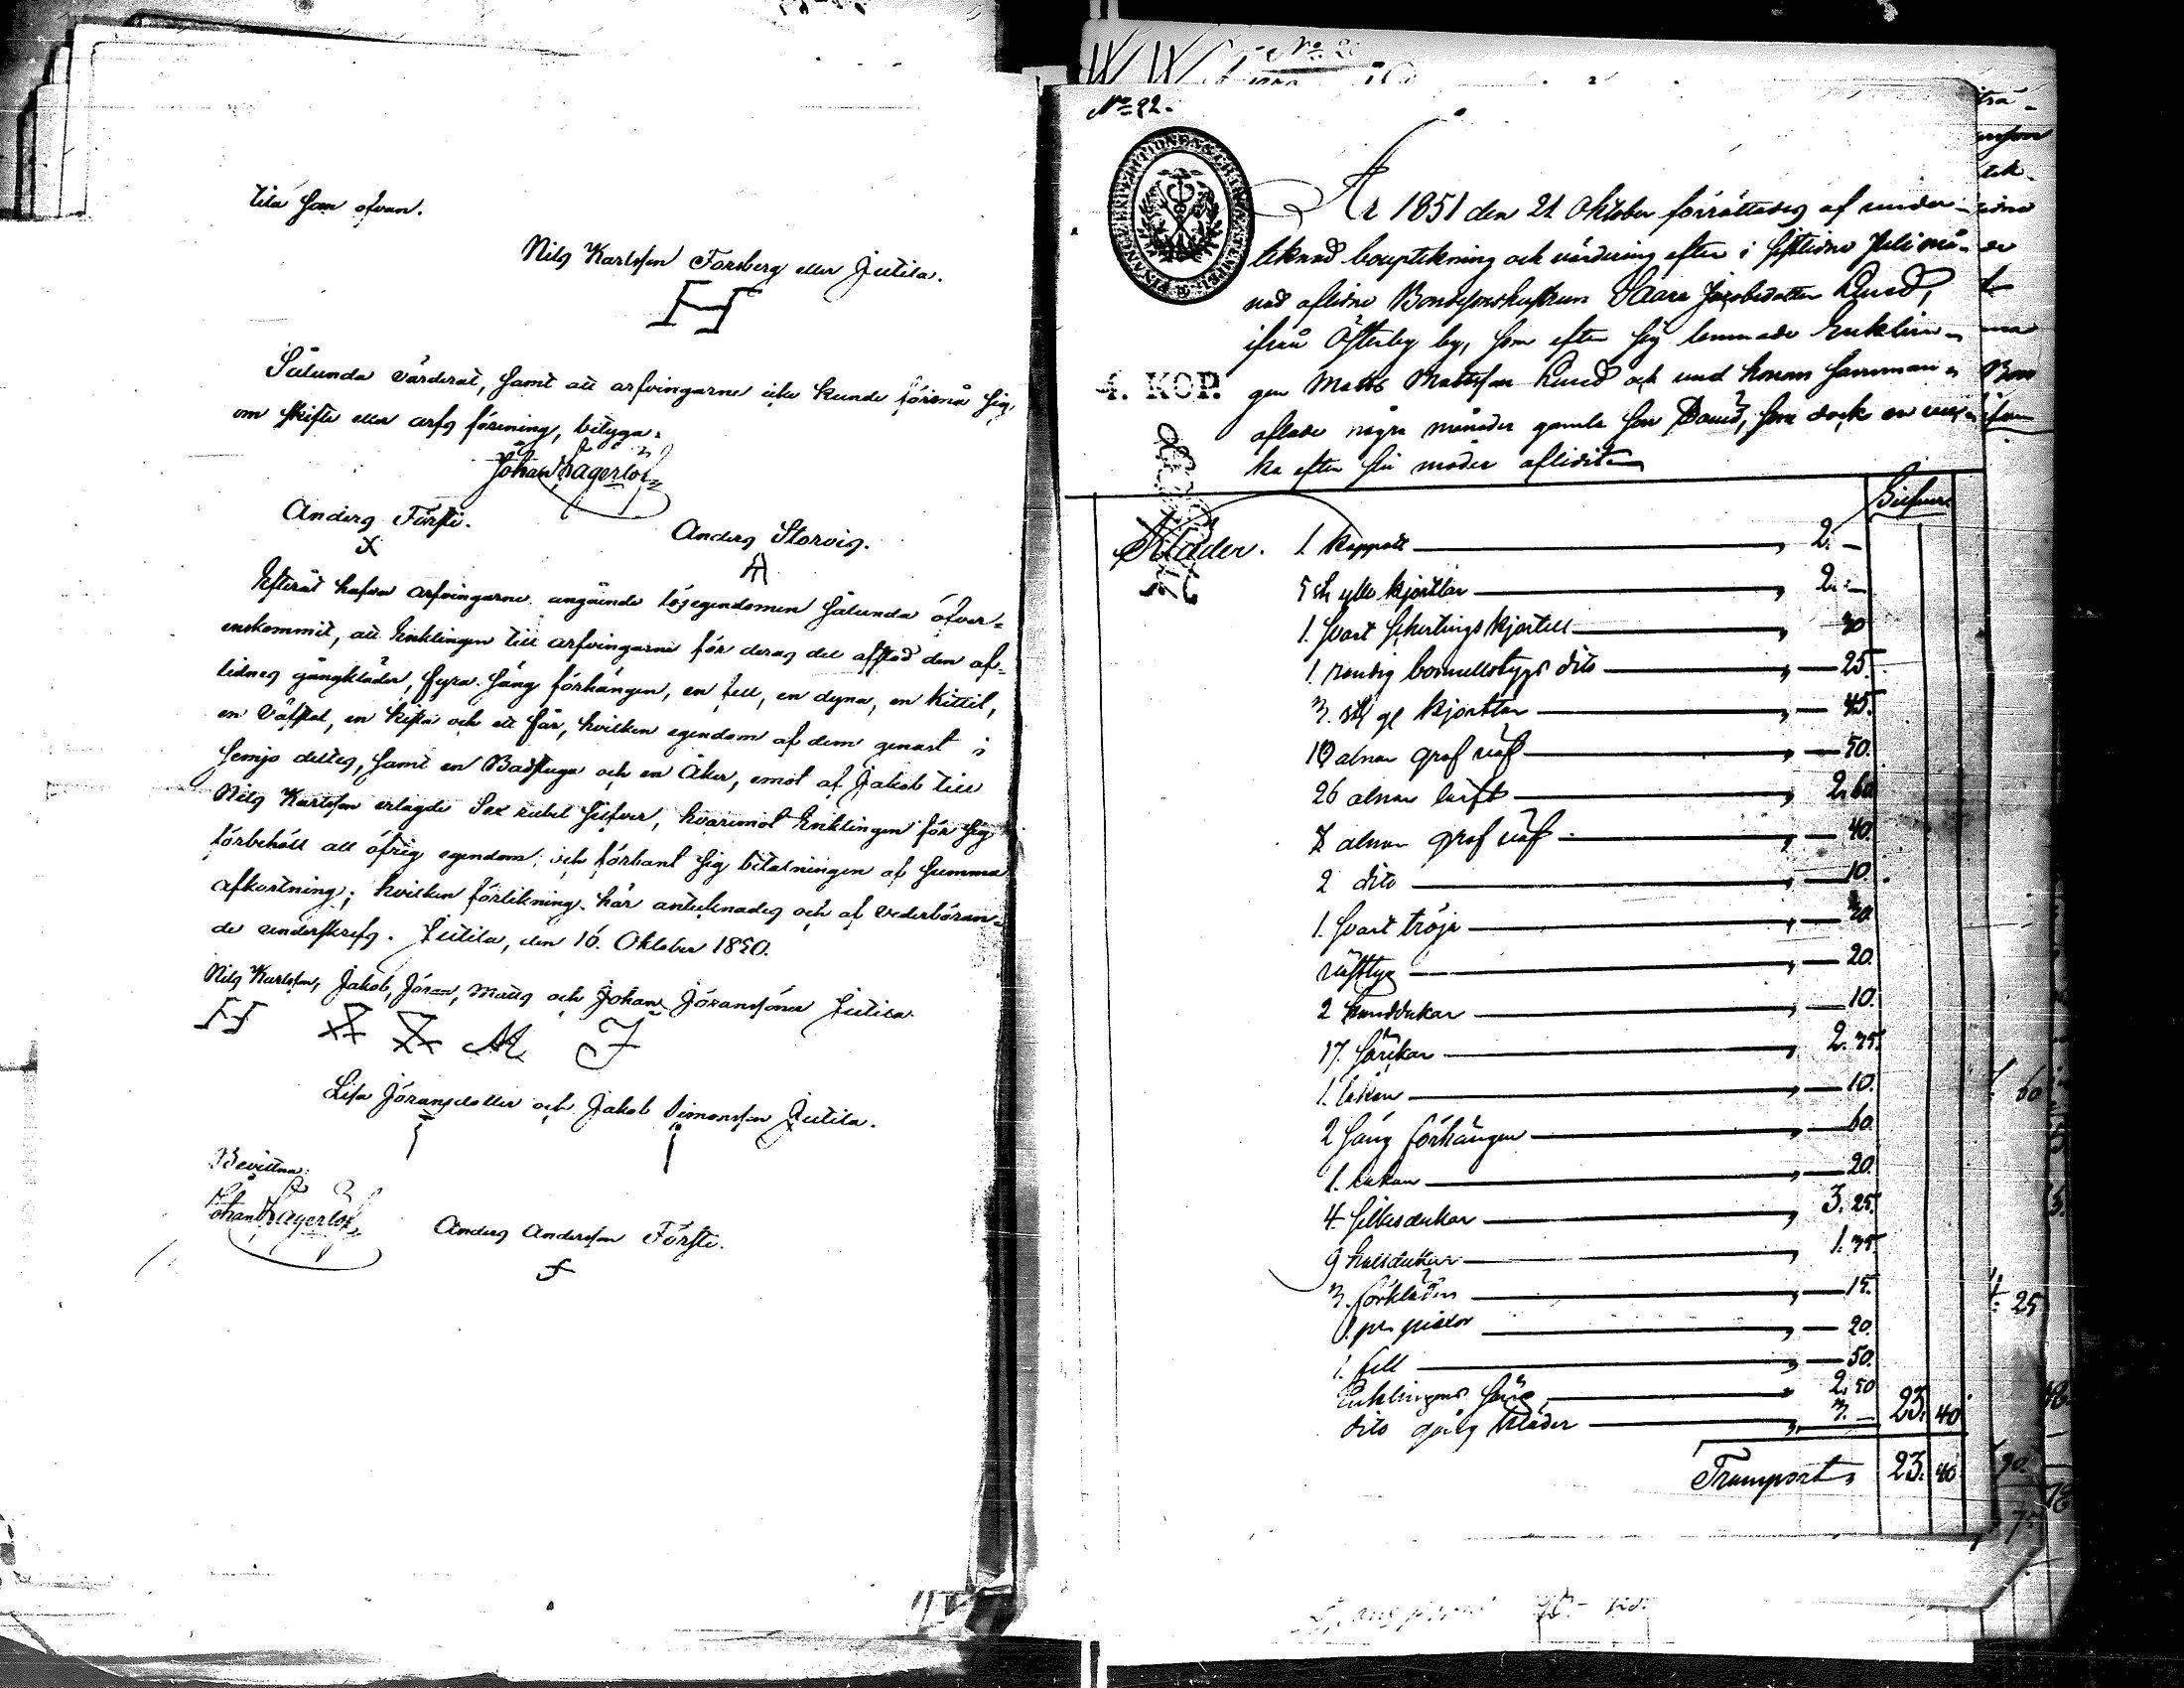 tila som ofvan.
Nils Karlsson Forsberg eller Jutila.
Sålunda värderat, samt att arfvingarne icke kunde förena sig
om skifte eller arfs förening, betyga:
Johan Lagerlöf
AndersFörste.
Anders Storvis.
Efteråt hafva arfvingarne angående lösegendomen sålunda öfver-
enskommit, att Enklingen till arfvingarne för deras del afstod den af-
lidnes gångkläder, fyra säng förhängen, en fell, en dyna, en kittel,
en Våfstol, en kista och ett får, hvilken egendom af dem genast i
semjo deltes, samt en Badstuga och en Åker, emot af Jakob till
Nils Karlsson erlagde Sex rubel silfver, hvaremot Enklingen för sig
förbehöll all öfrig egendom, och förbant sig betalningen af summa
afkortning; hvilken förlikning här antecknades och af vederböran-
de underskrefs. Jutila, den 16. Oktober 1850.
Nils Karlsson, Jakob, Jöran, Matts och Johan Jöranssöner Jutila.
Lisa Jöransdotter och Jakob Simonsson Jutila.
Bevittna:
Johan Lagerlöf
Anders Andersson Förste.
No 92.
År 1851 den 21 Oktober förrättades af under-
teknad bouptekning och värdering efter i sistlidne Juli må-
nad aflidne Bondesonshustrun Saara Jacobsdotter Lund,
ifrån Österby by, som efter sig lemnade Enklin-
gen Matts Mattsson Lund och med honom samman-
aflade några månader gamla son David, som dock en vec-
ka efter sin moder aflidit
4. KOP.
Silfver
Kläder. 1 kappott " 2. —
5 st ylle kjortlar " 2. —
1. svart schertings kjortell " 30
1. randig bomullstygs dito " — 25.
3. st gl kjortlar " — 45.
10 alnar grof väf " — 50.
26 alnar lärft " 2. 60
7 alnar grof väf " — 40.
2 dito " — 10.
1. svart tröja " — 30.
" — 20.
2 handdukar " — 10.
17. särkar " 2. 75.
1. lakan " — 10.
2 säng förhängen " — 60.
1. lakan " — 20.
4 silkesdukar " 3. 25.
9 halsdukar " 1. 75.
3. förkläden " — 15.
1 pr " — 20.
1. fell " — 50.
Enklingens säng " 2. 50
dito gång kläder " 3. — 23. 40
Transport " 23. 40.